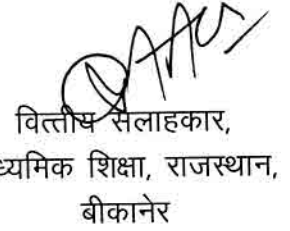 वित्तीय सलाहकार,
ध्यमिक शिक्षा, राजस्थान,
बीकानेर